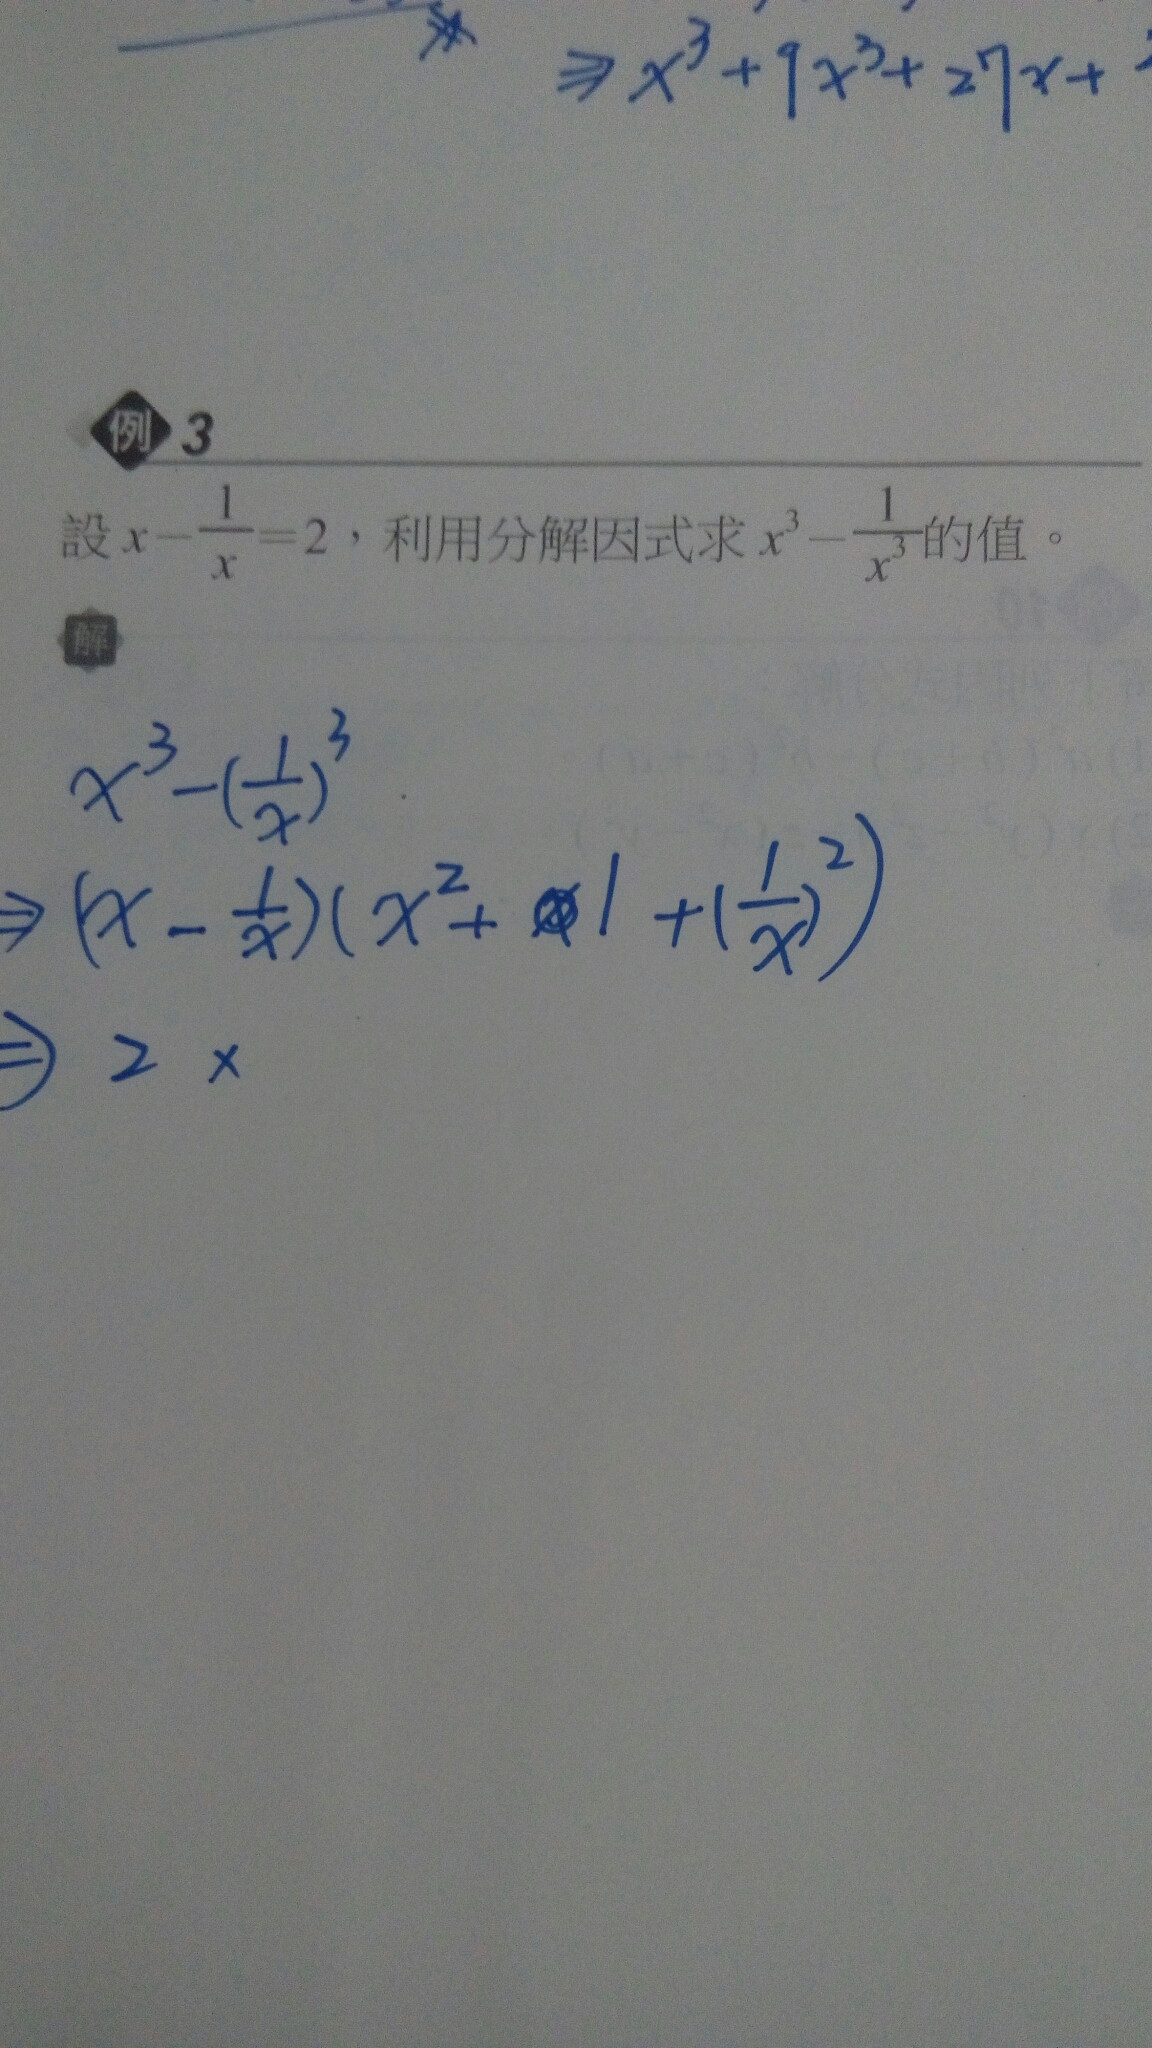 ⇒ x³ + 9x³ + 27x +
例 3
設 x − 1/x = 2，利用分解因式求 x³ − 1/x³ 的值。
解
x³ − (1/x)³
⇒ (x − 1/x)(x² + 1 + (1/x)²)
⇒ 2 ×